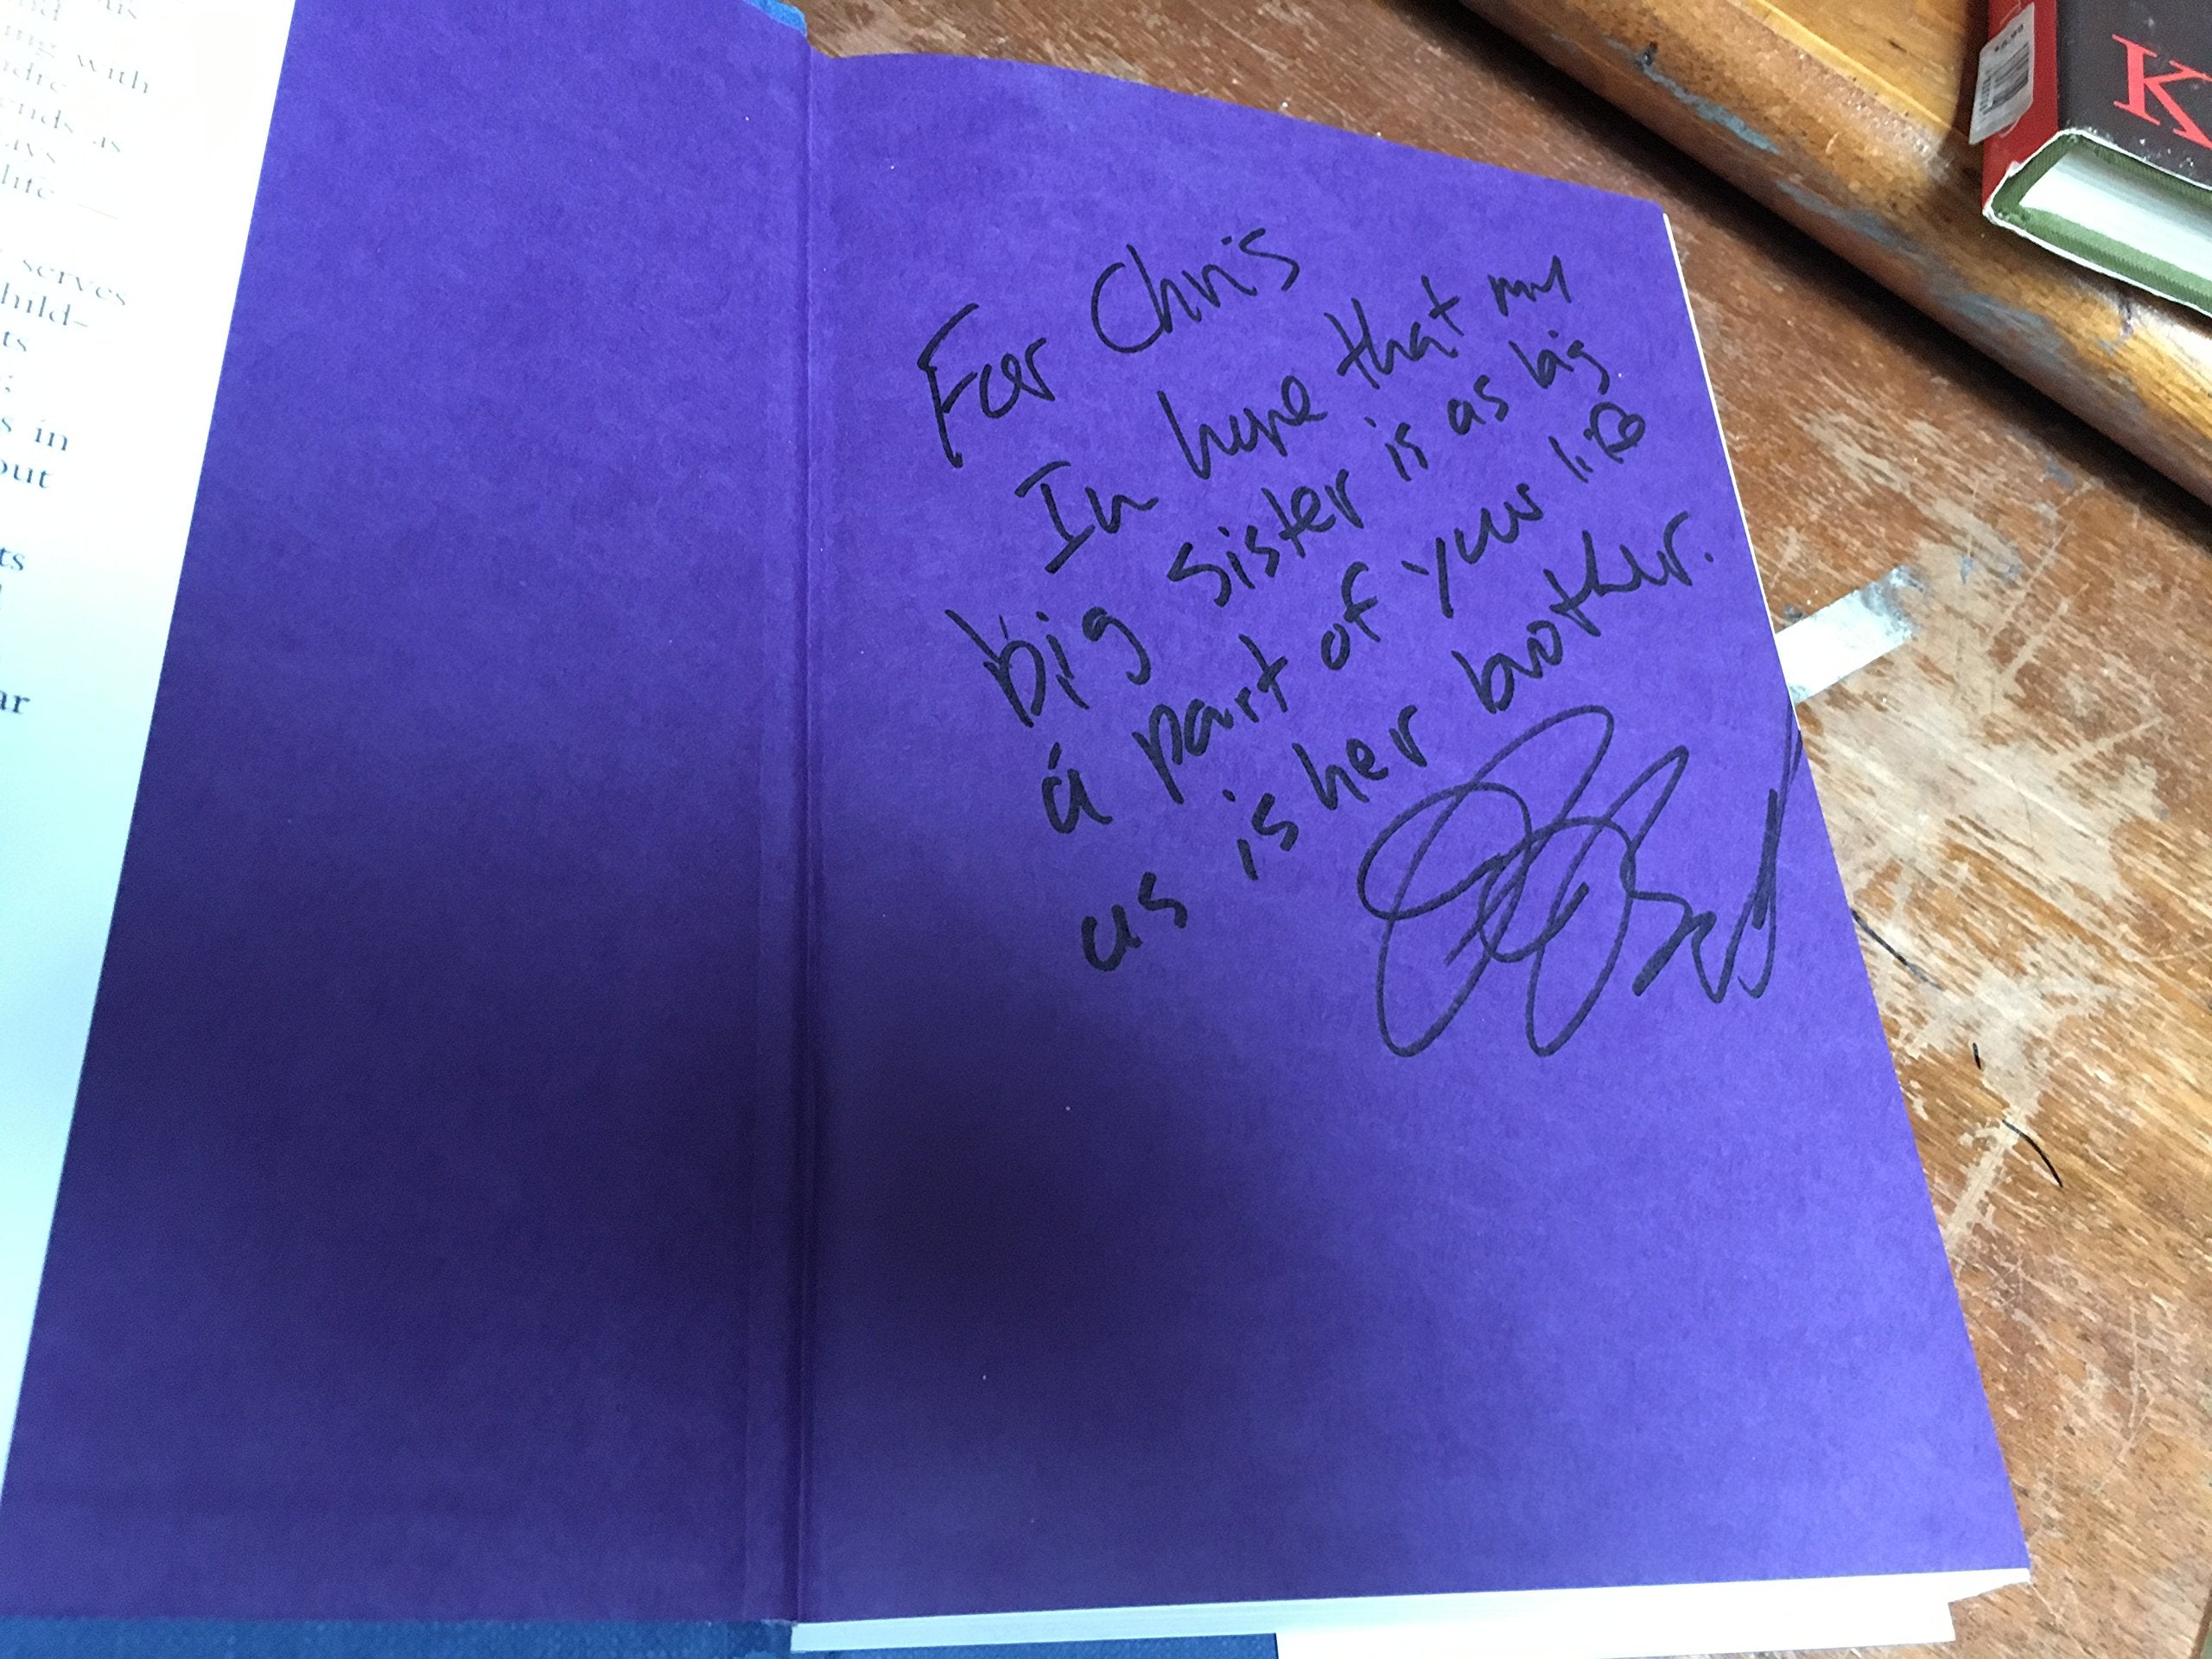 with
ends as
life —
serves
hild-
ts
s in
out
ts
ar
For Chris
In hope that my
big sister is as big
a part of your life
as is her brother.
K